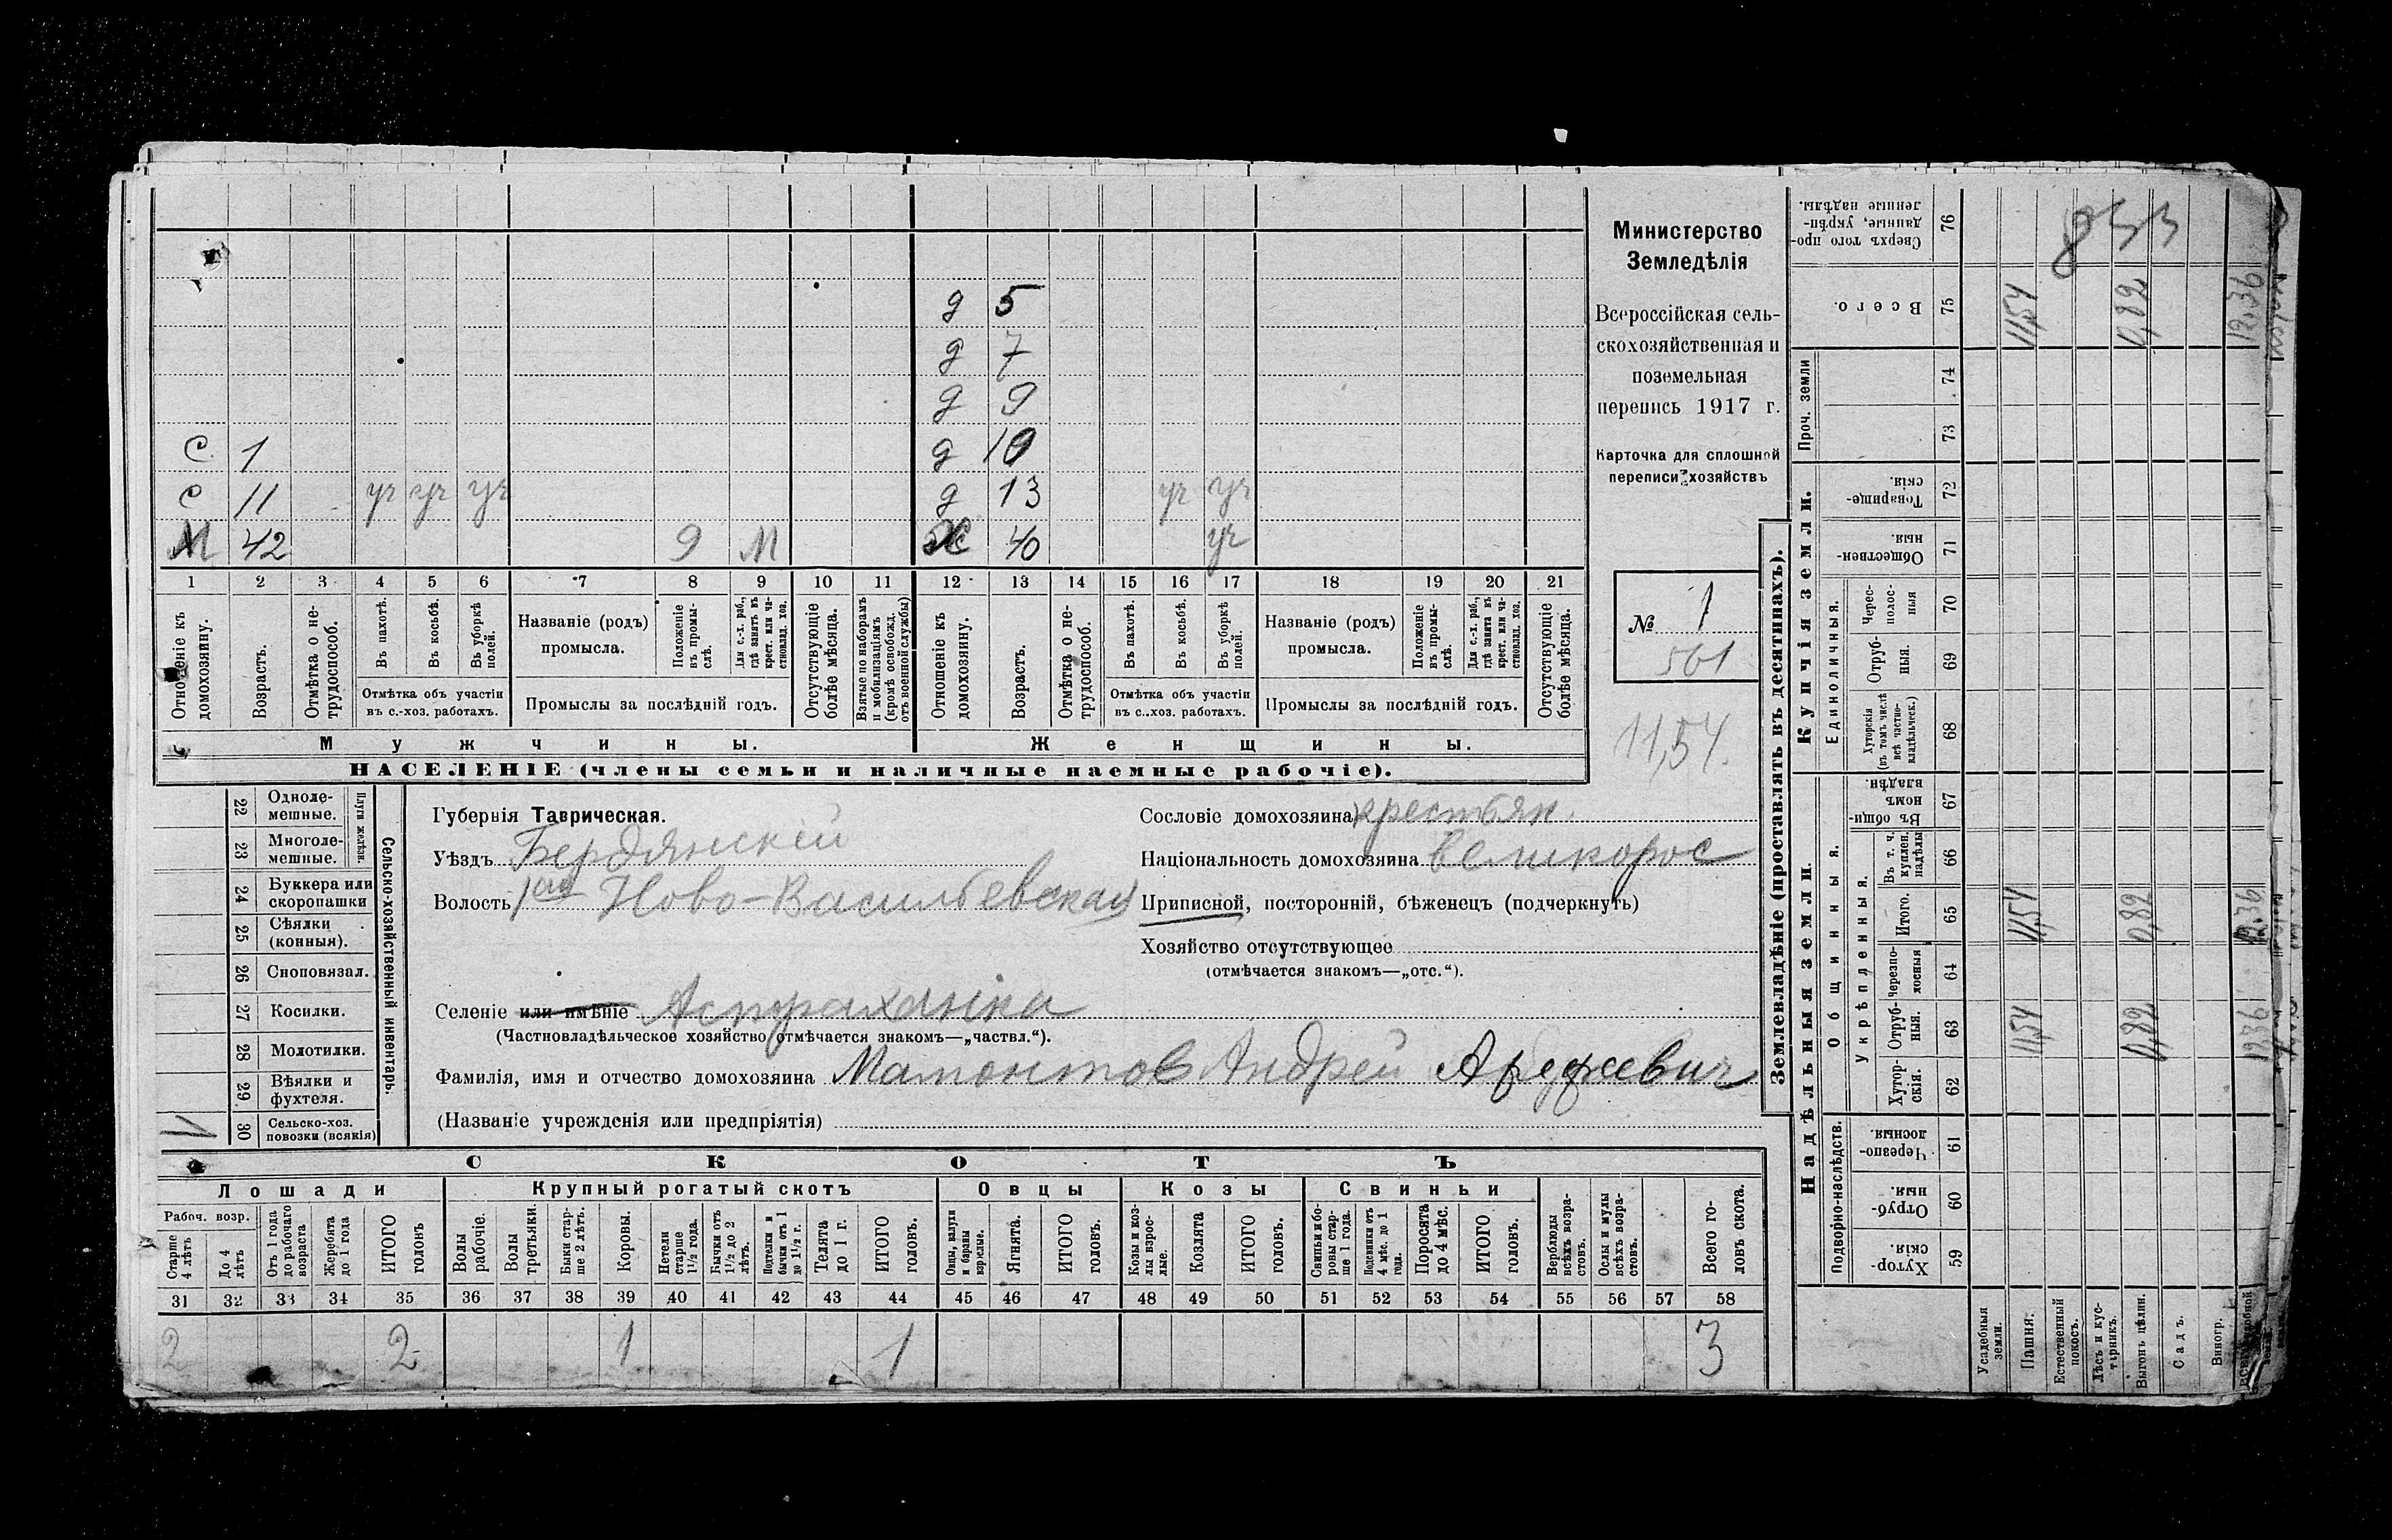 Министерство
Земледѣлія
Всероссійская сель-
скохозяйственная и
поземельная
перепись 1917 г.
Карточка для сплошной
переписи хозяйствъ
№ 1
561
11,54.
д 5
д 7
д 9
С 1 д 10
С 11 уч уч уч д 13 уч уч
М 42 9 М Ж 40 уч
1 2 3 4 5 6 7 8 9 10 11 12 13 14 15 16 17 18 19 20 21
Отношеніе къ домохозяину.
Возрастъ.
Отмѣтка о не-трудоспособ.
Въ пахотѣ.
Въ косьбѣ.
Въ уборкѣ полей.
Отмѣтка объ участіи
въ с.-хоз. работахъ.
Названіе (родъ)
промысла.
Положеніе въ промы-слѣ.
Для с.-х. раб., гдѣ занятъ въ крест. или ча-стновлад. хоз.
Промыслы за послѣдній годъ.
Отсутствующіе болѣе мѣсяца.
Взятые по наборамъ и мобилизаціямъ (кромѣ освобожд. отъ военной службы)
Отношеніе къ домохозяину.
Возрастъ.
Отмѣтка о не-трудоспособ.
Въ пахотѣ.
Въ косьбѣ.
Въ уборкѣ полей.
Отмѣтка объ участіи
въ с.-хоз. работахъ.
Названіе (родъ)
промысла.
Положеніе въ промы-слѣ.
Для с.-х. раб., гдѣ занята въ крест. или ча-стновлад. хоз.
Промыслы за послѣдній годъ.
Отсутствующіе болѣе мѣсяца.
Мужчины. Женщины.
НАСЕЛЕНІЕ (члены семьи и наличные наемные рабочіе).
22 Одноле-мешные.
23 Многоле-мешные.
Плуги желѣзн.
24 Буккера или скоропашки
25 Сѣялки (конныя).
26 Сноповязал.
27 Косилки.
28 Молотилки.
29 Вѣялки и фухтеля.
30 Сельско-хоз. повозки (всякія)
Сельско-хозяйственный инвентарь.
Губернія Таврическая.
Уѣздъ Бердянскій
Волость 1ая Ново-Васильевская
Селеніе или имѣніе Астраханка
(Частновладѣльческое хозяйство отмѣчается знакомъ—„частвл.“).
Фамилія, имя и отчество домохозяина Мамонтов Андрей
(Названіе учрежденія или предпріятія)
Сословіе домохозяина крестьян.
Національность домохозяина великорос
Приписной, посторонній, бѣженецъ (подчеркнуть)
Хозяйство отсутствующее
(отмѣчается знакомъ—„отс.“).
СКОТЪ
Лошади Крупный рогатый скотъ Овцы Козы Свиньи
Рабоч. возр.
Старше 4 лѣтъ
До 4 лѣтъ
Отъ 1 года до рабочаго возраста
Жеребята до 1 года
ИТОГО головъ
Волы рабочіе.
Волы третьяки.
Быки стар-ше 2 лѣтъ.
Коровы.
Нетели старше 1½ года.
Бычки отъ 1½ до 2 лѣтъ.
Подтелки и бычки отъ 1 до 1½ г.
Телята до 1 г.
ИТОГО головъ.
Овцы, валухи и бараны взрослые.
Ягнята.
ИТОГО головъ.
Козы и коз-лы взрос-лые.
Козлята
ИТОГО головъ.
Свиньи и бо-ровы стар-ше 1 года.
Подсвинки отъ 4 мѣс. до 1 года.
Поросята до 4 мѣс.
ИТОГО головъ.
Верблюды всѣхъ возра-стовъ.
Ослы и мулы всѣхъ возра-стовъ.
Всего го-ловъ скота.
31 32 33 34 35 36 37 38 39 40 41 42 43 44 45 46 47 48 49 50 51 52 53 54 55 56 57 58
2 2 1 1 3
Землевладѣніе (проставлять въ десятинахъ).
Купчія земли.
Надѣльныя земли.
Сверхъ того про-данные, укрѣп-ленные надѣлы. 76
853
Всего. 75 11,54 0,82 12,36
Проч. земли 74
73
Товарище-скія. 72
Обществен-ныя. 71
Единоличныя.
Черес-полос-ныя 70
Отруб-ныя. 69
Хуторскія (въ томъ числѣ всѣ частно-владѣльческ.) 68
Въ общин-номъ владѣн. 67
Общинныя.
Укрѣпленныя.
Въ т. ч. куплен. надѣлы 66
Итого. 65 11,54 0,82 12,36
Черезпо-лосныя 64
Отруб-ныя. 63 11,54 0,82 12,36
Хутор-скія. 62
Подворно-наслѣдств.
Черезпо-лосныя. 61
Отруб-ныя. 60
Хутор-скія. 59
Усадебныя земли.
Пашня.
Естественный покосъ.
Лѣсъ и кус-тарникъ.
Выгонъ цѣлин.
Садъ.
Виногр.